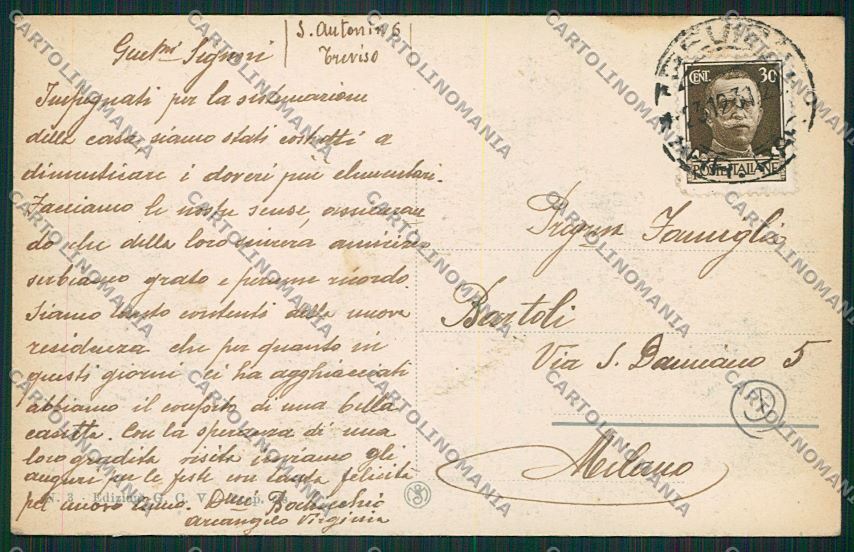 S. Antonin 6
Treviso
Gent.mi Signori
Impegnati per la sistemazione
della casa, siamo stati costretti a
dimenticare i doveri più elementari.
Facciamo le nostre scuse, assicuran
do che della loro sincera amicizia
serbiamo grato e perenne ricordo.
Siamo tanto contenti della nuova
residenza che per quanto in
questi giorni ci ha agghiacciati
abbiamo il conforto di una bella
casetta. Con la speranza di una
loro gradita visita inviamo gli
auguri per le feste con tanta felicità
pel nuovo anno.
Arcangelo Virginia
N. 3 - Edizione G. C. V.
CENT. 30
POSTE ITALIANE
Preg.ma Famiglia
Bartoli
Via S. Damiano 5
Milano
CARTOLINOMANIA